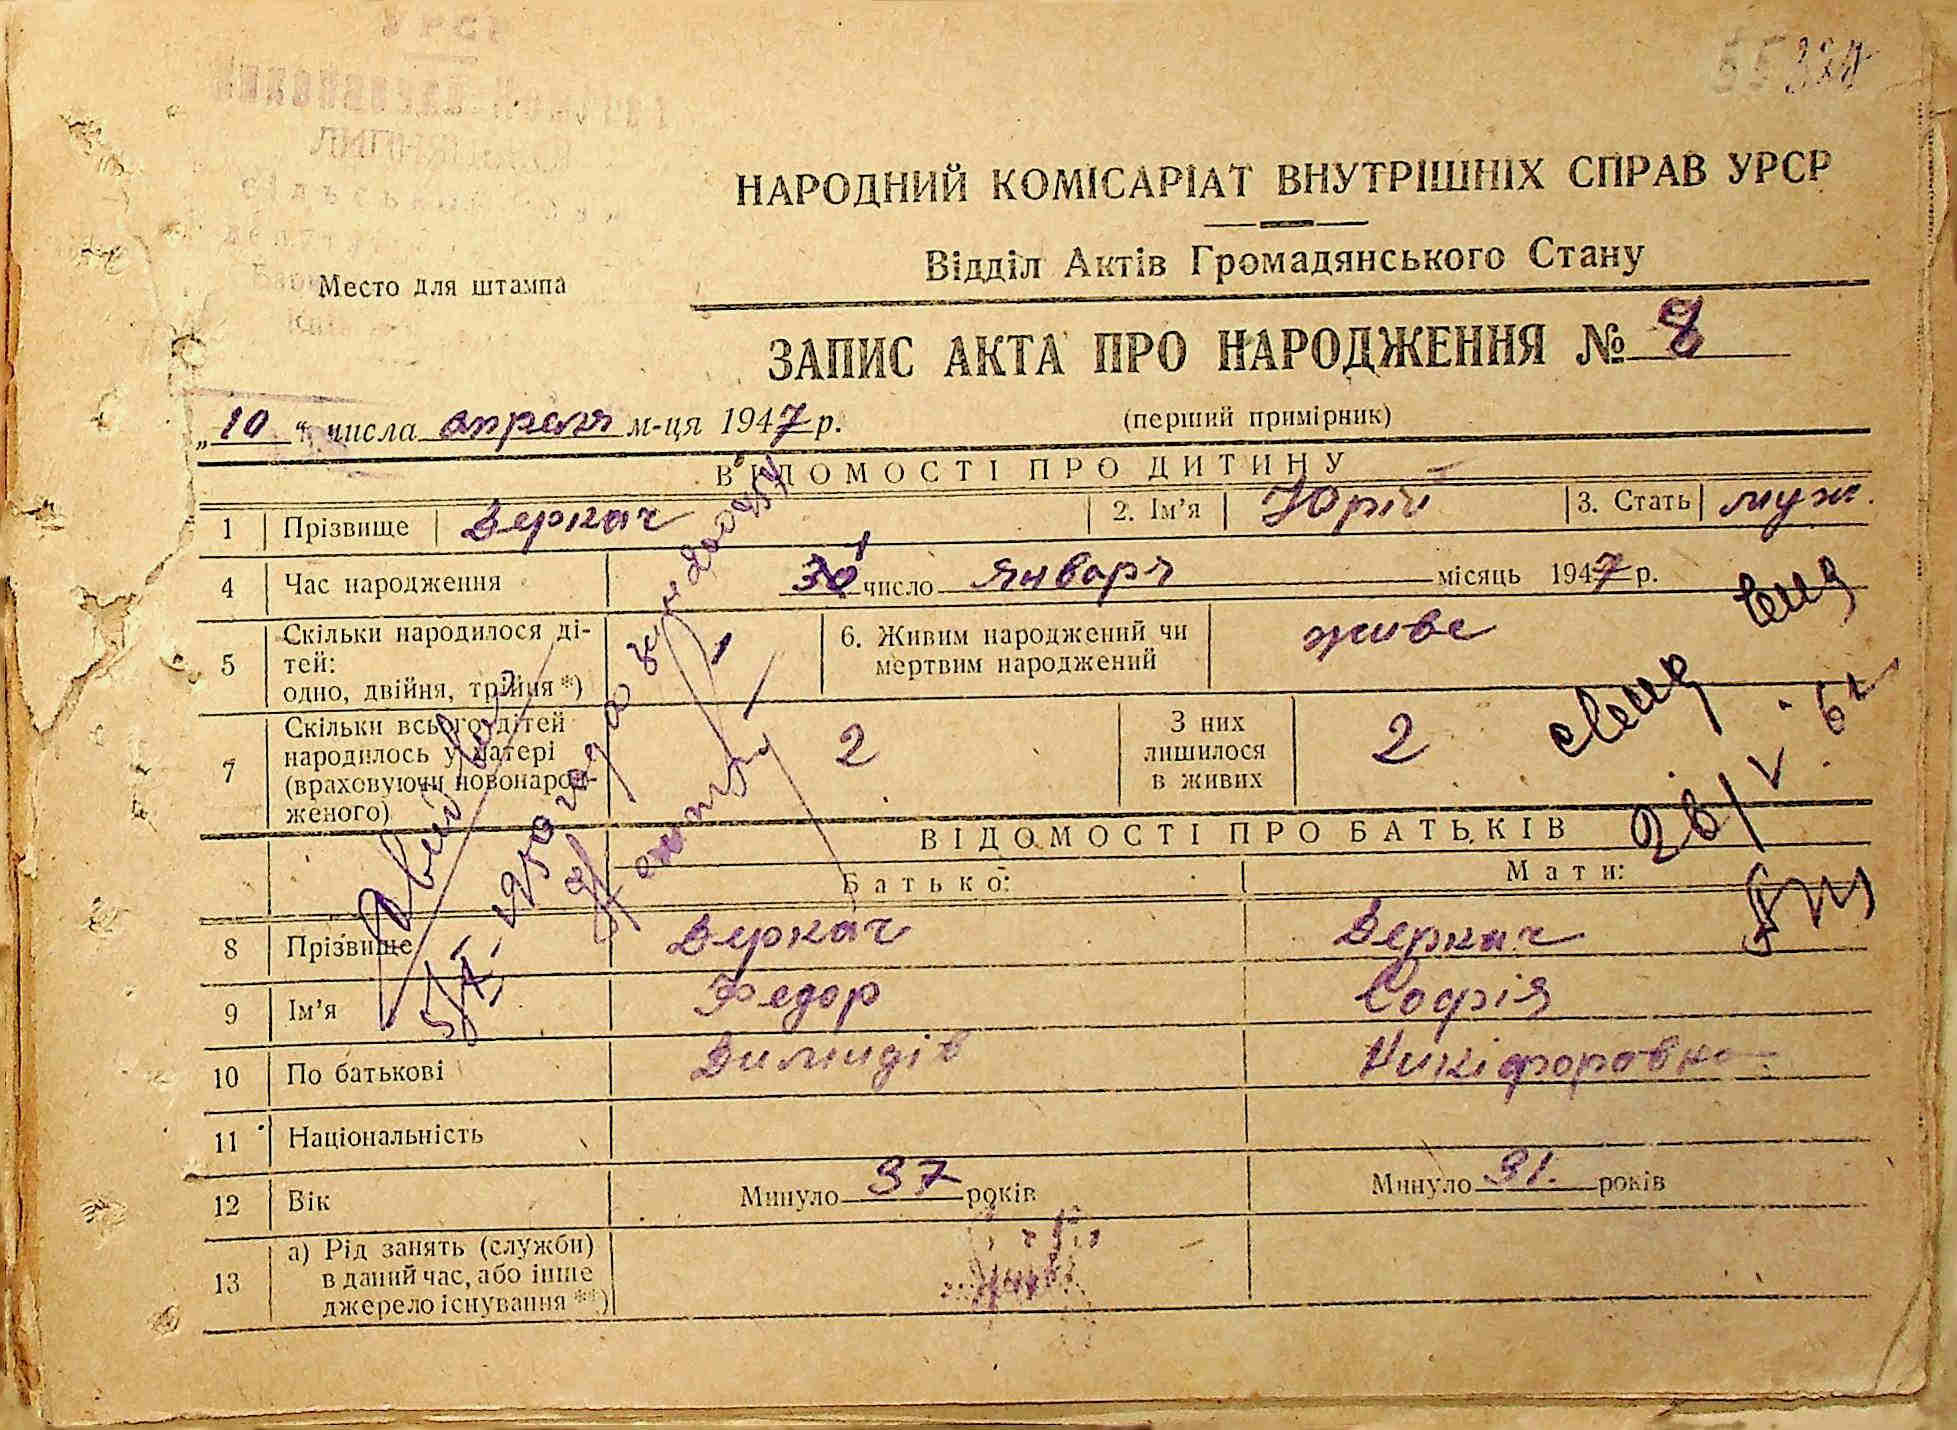 НАРОДНИЙ КОМІСАРІАТ ВНУТРІШНІХ СПРАВ УРСР
Відділ Актів Громадянського Стану
Место для штампа
ЗАПИС АКТА ПРО НАРОДЖЕННЯ № 8
„10“ числа апреля м-ця 1947 р. (перший примірник)
ВІДОМОСТІ ПРО ДИТИНУ
1 Прізвище Деркач 2. Ім’я Юрій 3. Стать муж.
4 Час народження 30 число января місяць 1947 р.
5 Скільки народилося ді-
тей:
одно, двійня, трійня *) 6. Живим народжений чи
мертвим народжений живе
7 Скільки всього дітей
народилось у матері
(враховуючи новонарод-
женого) 2 З них
лишилося
в живих 2
26/V 61
ВІДОМОСТІ ПРО БАТЬКІВ
Батько: Мати:
8 Прізвище Деркач Деркач
9 Ім’я Федор Софія
10 По батькові Никіфоровна
11 Національність
12 Вік Минуло 37 років Минуло 31. років
13 а) Рід занять (служби)
в даний час, або інше
джерело існування **)